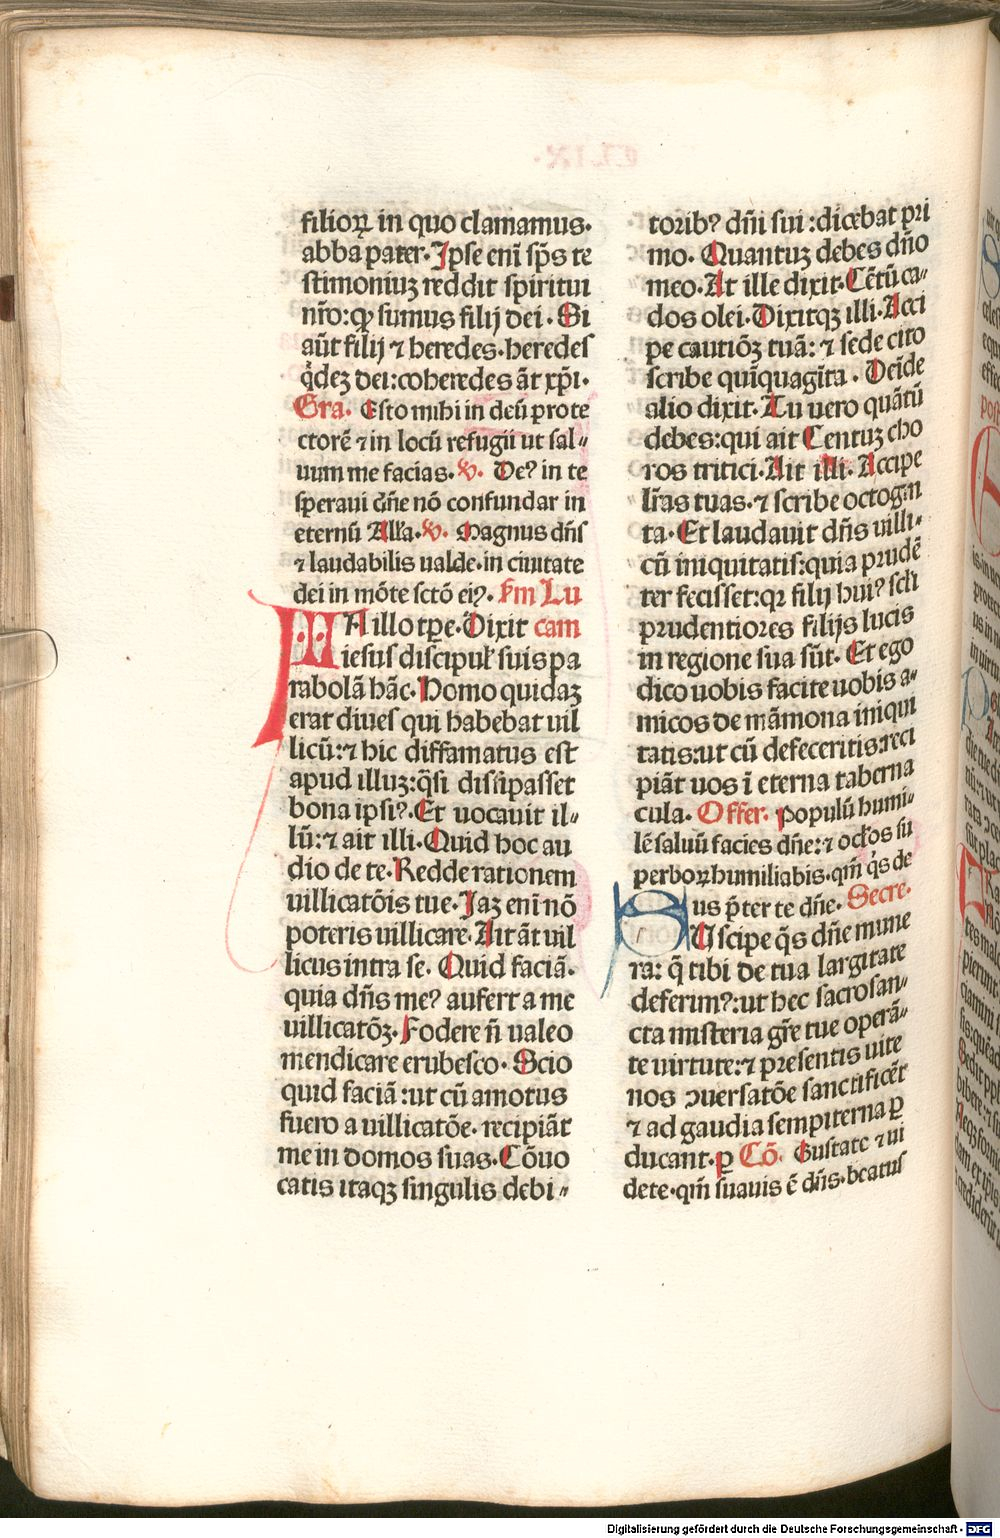 filioꝝ in quo clamamus.
abba pater. Ipse enī sp̄s te
stimoniuꝫ reddit spiritui
nr̄o: ꝙ sumus filij dei. Si
aūt filij ⁊ heredes. heredes
q̇dez dei: coheredes āt xp̄i.
Gra. Esto mihi in deū prote
ctorē ⁊ in locū refugii ut sal⸗
uum me facias. v. De? in te
speraui dn̄e nō confundar in
eternū Alła. v. Magnus dn̄s
⁊ laudabilis ualde. in ciuitate
dei in mōte sctō ei?. Ꝼm Lu
IN illo tp̄e. Dixit cam
iesus discipuł suis pa
rabolā hāc. Homo quidaꝫ
erat diues qui habebat uil
licū: ⁊ hic diffamatus est
apud illuꝫ: q̄si dissipasset
bona ipsi?. Et uocauit il⸗
lū: ⁊ ait illi. Quid hoc au
dio de te. Redde rationem
uillicatōis tue. Iaꝫ enī nō
poteris uillicare. Ait āt uil
licus intra se. Quid faciā.
quia dn̄s me? aufert a me
uillicatōꝫ. Fodere n̄ ualeo
mendicare erubesco. Scio
quid faciā: ut cū amotus
fuero a uillicatōe. recipiāt
me in domos suas. Cōuo
catis itaqꝫ singulis debi⸗
torib? dn̄i sui: dicebat pri
mo. Quantuꝫ debes dn̄o
meo. At ille dixit. Cētū ca⸗
dos olei. Dixitqꝫ illi. Acci
pe cautiōꝫ tuā: ⁊ sede cito
scribe quīquagīta. Deīde
alio dixit. Tu uero quātū
debes: qui ait Centuꝫ cho
ros tritici. Ait illi. Accipe
lr̄as tuas. ⁊ scribe octogin
ta. Et laudauit dn̄s uilli⸗
cū iniquitatis: quia prudē
ter fecisset: qꝛ filij hui? scłi
prudentiores filijs lucis
in regione sua sūt. Et ego
dico uobis facite uobis a⸗
micos de māmona iniqui
tatis: ut cū defeceritis: reci
piāt uos ī eterna taberna
cula. Offer. Populū humi⸗
lē saluū facies dn̄e: ⁊ ocłos su
perboꝝ humiliabis. qm̄ q̇s de
us p̄ter te dn̄e. Secre.
SUscipe q̄s dn̄e mune
ra: q̄ tibi de tua largitate
deferim?: ut hec sacrosan⸗
cta misteria gr̄e tue operā⸗
te uirtute: ⁊ presentis uite
nos ꝯuersatōe sanctificēt
⁊ ad gaudia sempiterna ꝑ
ducant. ꝑ Cō. Gustate ⁊ ui
dete. qm̄ suauis ē dn̄s. beatus
Digitalisierung gefördert durch die Deutsche Forschungsgemeinschaft - DFG